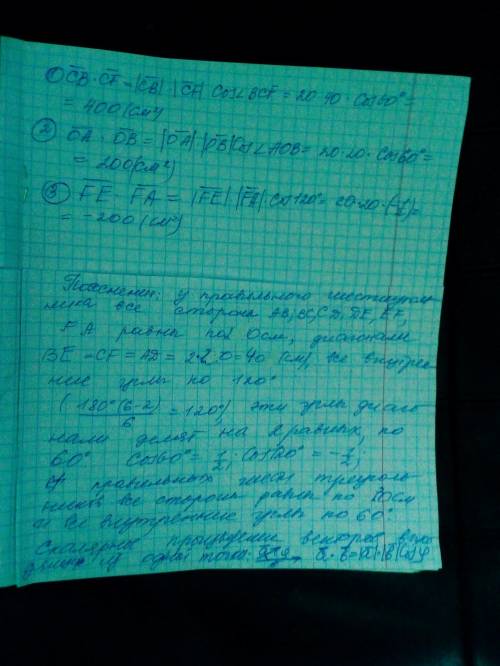 ① CB · CF = |CB| · |CF| cos∠BCF = 20 · 40 · cos60° =
= 400 (см²)
② OA · OB = |OA| |OB| cos∠AOB = 20 · 20 · cos60° =
= 200 (см²)
③ FE · FA = |FE| |FA| · cos120° = 20 · 20 · (-1/2) =
= -200 (см²)
Пояснения: у правильного шестиуголь
ника все стороны AB, BC, CD, DE, EF,
FA равны по 20см, диагонали
BE = CF = AD = 2·20 = 40 (см), все внутрен
ние углы по 120°
(180°(6-2)/6 = 120°), эти углы диаго
нали делят на 2 равных, по
60° cos60° = 1/2; cos120° = -1/2;
У правильных шести треуголь
ников все стороны равны по 20см
и все внутренние углы по 60°
Скалярное произведение векторов
из одной точки a · b = |a| · |b| cos φ